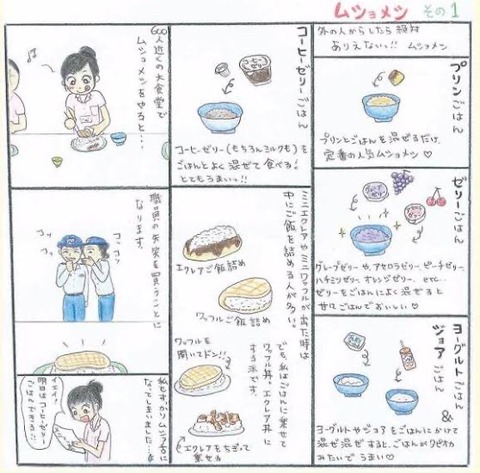 ムショメシ その1
外の人からしたら絶対
ありえないっ!! ムショメシ
プリンごはん
プリンとごはんを混ぜるだけ
定番の人気ムショメシ♡
ゼリーごはん
グレープゼリーや、アセロラゼリー、ピーチゼリー、
ハチミツゼリー、オレンジゼリー、etc...
ゼリーをごはんによく混ぜると
甘口ごはんでおいしい♡
ヨーグルトごはん
&
ジョアごはん
ヨーグルトやジョアをごはんにかけて
混ぜ混ぜすると、ごはんがタピオカ
みたいでうまい♡
コーヒーゼリーごはん
コーヒーゼリー(もちろんミルクも)を
ごはんとよく混ぜて食べる!
とてもうまいっ!!
ミニエクレアやミニワッフルが出た時は
中にご飯を詰める人が多い。
エクレアご飯詰め
ワッフルご飯詰め
でも、私はごはんに乗せて
ワッフル丼。エクレア丼に
する派です。
ワッフルを
開いてドン!!
エクレアをちぎって
乗せる
600人近くの大食堂で
ムショメシをやると…
職員の失笑を買うことに
なります。
コソ
コソ
コソ
コソ
私もすっかりムショ舌に
なってしまいました…
イエイ!
明日はコーヒーゼリー
ごはんできる!!